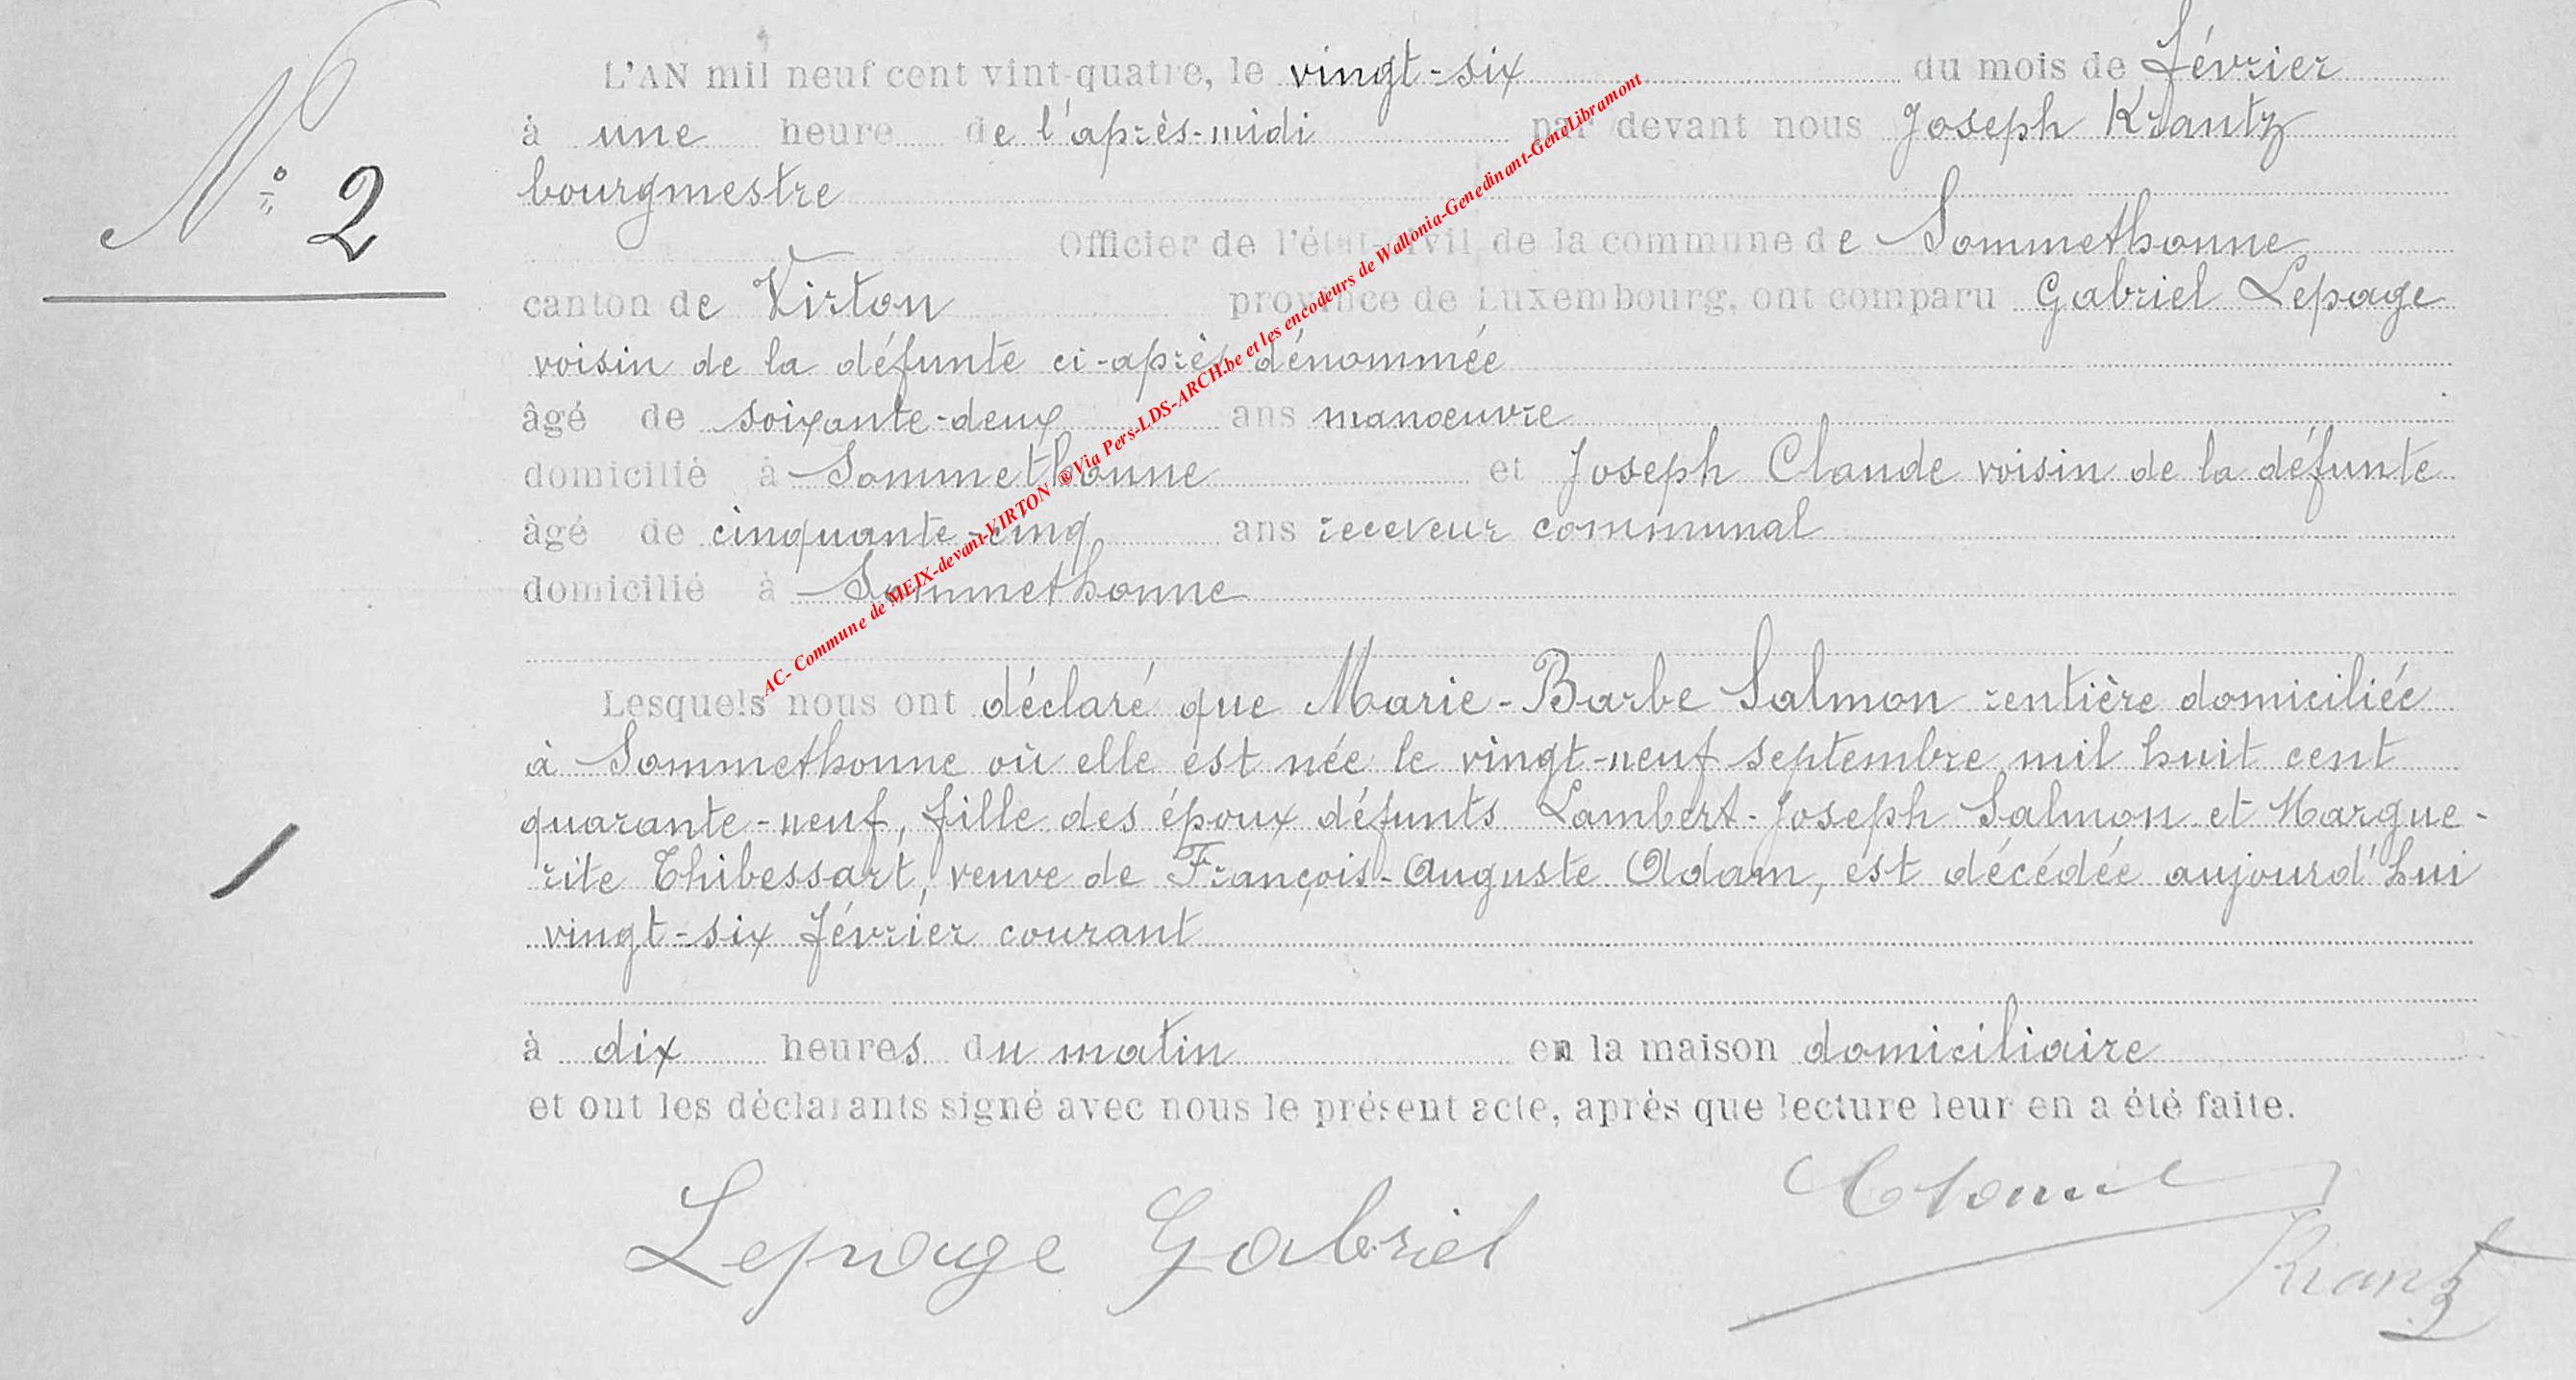 N° 2
L'AN mil neuf cent vint-quatre, le vingt-six du mois de février
à une heure de l'après-midi par devant nous Joseph Krantz
bourgmestre
Officier de l'état-civil de la commune de Sommethonne
canton de Virton province de Luxembourg, ont comparu Gabriel Lepage
voisin de la défunte ci-après dénommée
âgé de soixante-deux ans manoeuvre
domicilié à Sommethonne et Joseph Claude voisin de la défunte
âgé de cinquante-cinq ans receveur communal
domicilié à Sommethonne
Lesquels nous ont déclaré que Marie-Barbe Salmon rentière domiciliée
à Sommethonne où elle est née le vingt-neuf septembre mil huit cent
quarante-neuf, fille des époux défunts Lambert-Joseph Salmon et Margue-
rite Thibessart, veuve de François-Auguste Adam, est décédée aujourd'hui
vingt-six février courant
à dix heures du matin en la maison domiciliaire
et ont les déclarants signé avec nous le présent acte, après que lecture leur en a été faite.
Lepage Gabriel
Krantz
AC- Commune de MEIX-devant-VIRTON ® Via Pers-LDS-ARCH.be et les encodeurs de Wallonia-Genedinant-GeneLibramont